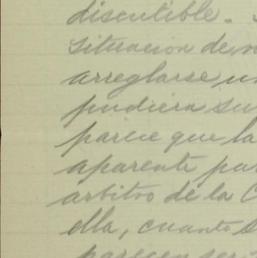 discutible.
situacion de
arreglarse
pudiera su
parece que la
aparente pa
arbitro de la C
ella, cuanto
parecen ser